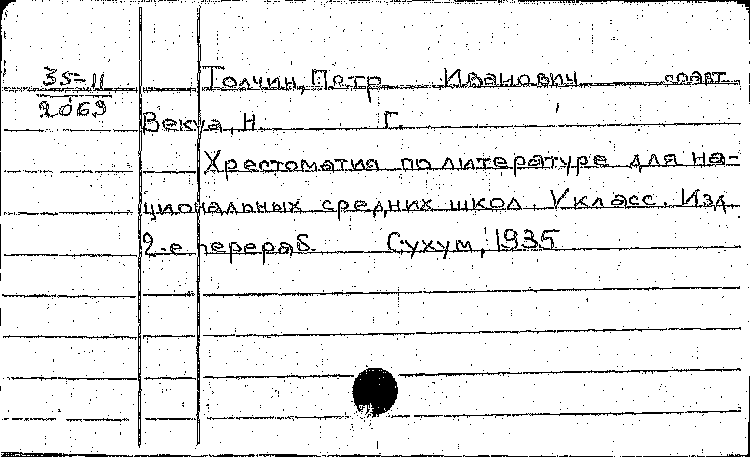 35-11
2069
Толчин, Петр Иванович соавт.
Векуа, Н. Г.
Хрестоматия по литературе для на-
циональных средних школ. V класс. Изд.
2-е перераб. Сухум, 1935